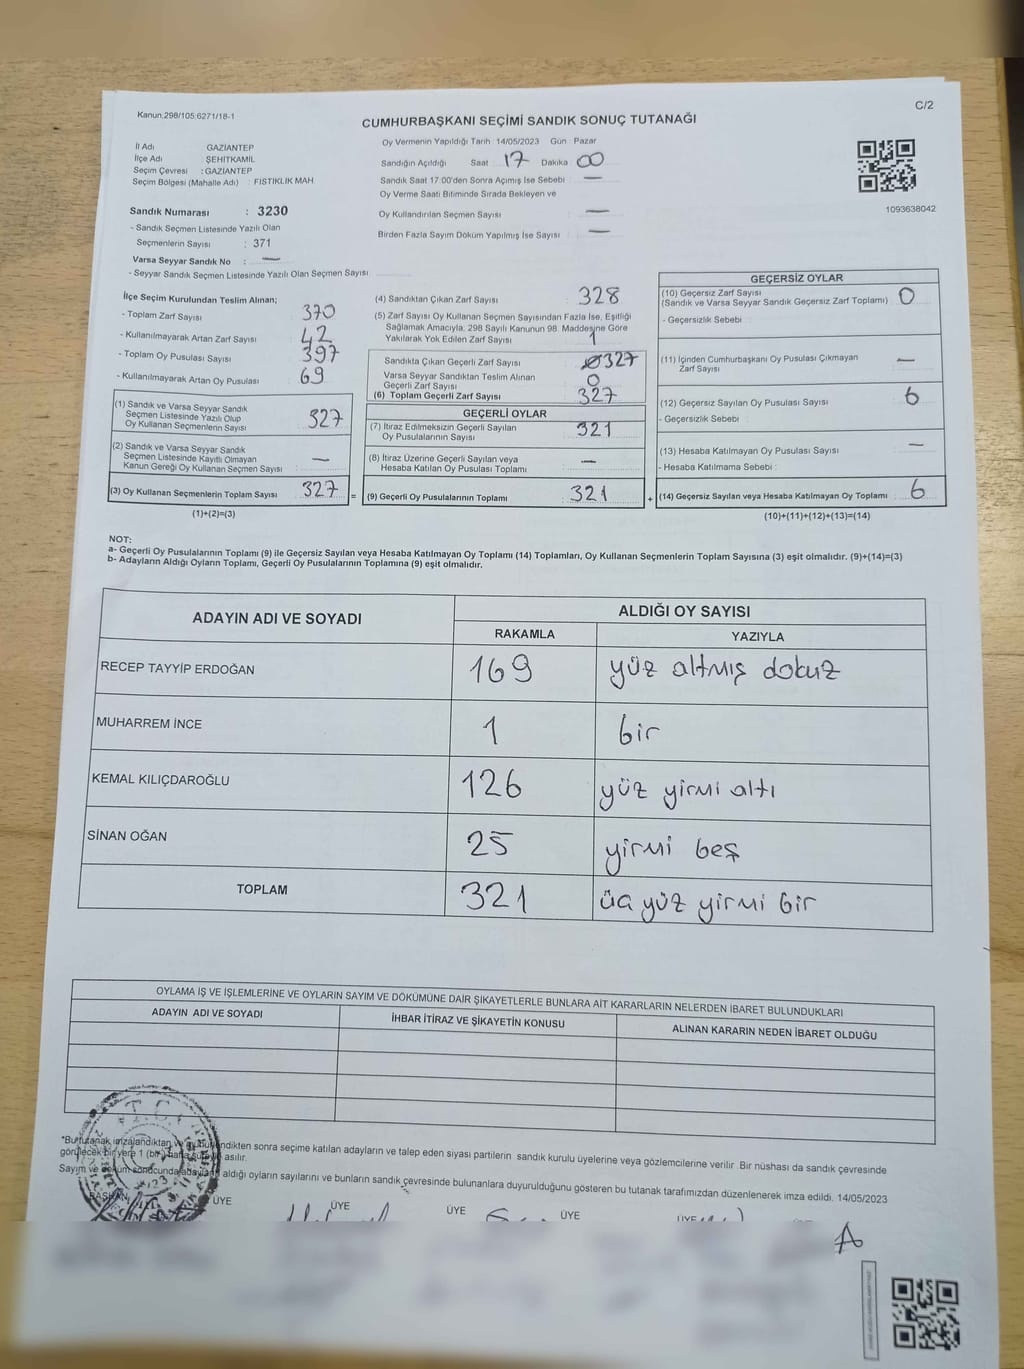 C/2
Kanun.298/105:6271/18-1
CUMHURBAŞKANI SEÇİMİ SANDIK SONUÇ TUTANAĞI
Oy Vermenin Yapıldığı Tarih : 14/05/2023 Gün : Pazar
İl Adı GAZİANTEP
İlçe Adı ŞEHİTKAMİL
Seçim Çevresi : GAZİANTEP
Seçim Bölgesi (Mahalle Adı) : FISTIKLIK MAH
Sandığın Açıldığı Saat 17 Dakika 00
Sandık Saat 17.00'den Sonra Açımış İse Sebebi : —
Oy Verme Saati Bitiminde Sırada Bekleyen ve
Oy Kullandırılan Seçmen Sayısı —
Birden Fazla Sayım Döküm Yapılmış İse Sayısı —
1093638042
Sandık Numarası : 3230
- Sandık Seçmen Listesinde Yazılı Olan
Seçmenlerin Sayısı : 371
Varsa Seyyar Sandık No : —
- Seyyar Sandık Seçmen Listesinde Yazılı Olan Seçmen Sayısı
İlçe Seçim Kurulundan Teslim Alınan;
- Toplam Zarf Sayısı 370
- Kullanılmayarak Artan Zarf Sayısı 42
- Toplam Oy Pusulası Sayısı 397
- Kullanılmayarak Artan Oy Pusulası 69
(1) Sandık ve Varsa Seyyar Sandık
Seçmen Listesinde Yazılı Olup
Oy Kullanan Seçmenlerin Sayısı 327
(2) Sandık ve Varsa Seyyar Sandık
Seçmen Listesinde Kayıtlı Olmayan
Kanun Gereği Oy Kullanan Seçmen Sayısı —
(3) Oy Kullanan Seçmenlerin Toplam Sayısı 327 =
(1)+(2)=(3)
(4) Sandıktan Çıkan Zarf Sayısı 328
(5) Zarf Sayısı Oy Kullanan Seçmen Sayısından Fazla İse, Eşitliği
Sağlamak Amacıyla, 298 Sayılı Kanunun 98. Maddesine Göre
Yakılarak Yok Edilen Zarf Sayısı 1
Sandıkta Çıkan Geçerli Zarf Sayısı 327
Varsa Seyyar Sandıktan Teslim Alınan
Geçerli Zarf Sayısı 0
(6) Toplam Geçerli Zarf Sayısı 327
GEÇERLİ OYLAR
(7) İtiraz Edilmeksizin Geçerli Sayılan
Oy Pusulalarının Sayısı 321
(8) İtiraz Üzerine Geçerli Sayılan veya
Hesaba Katılan Oy Pusulası Toplamı —
(9) Geçerli Oy Pusulalarının Toplamı 321 +
GEÇERSİZ OYLAR
(10) Geçersiz Zarf Sayısı
(Sandık ve Varsa Seyyar Sandık Geçersiz Zarf Toplamı) 0
- Geçersizlik Sebebi
(11) İçinden Cumhurbaşkanı Oy Pusulası Çıkmayan
Zarf Sayısı —
(12) Geçersiz Sayılan Oy Pusulası Sayısı 6
- Geçersizlik Sebebi :
(13) Hesaba Katılmayan Oy Pusulası Sayısı —
- Hesaba Katılmama Sebebi :
(14) Geçersiz Sayılan veya Hesaba Katılmayan Oy Toplamı 6
(10)+(11)+(12)+(13)=(14)
NOT:
a- Geçerli Oy Pusulalarının Toplamı (9) ile Geçersiz Sayılan veya Hesaba Katılmayan Oy Toplamı (14) Toplamları, Oy Kullanan Seçmenlerin Toplam Sayısına (3) eşit olmalıdır. (9)+(14)=(3)
b- Adayların Aldığı Oyların Toplamı, Geçerli Oy Pusulalarının Toplamına (9) eşit olmalıdır.
ADAYIN ADI VE SOYADI ALDIĞI OY SAYISI
RAKAMLA YAZIYLA
RECEP TAYYİP ERDOĞAN 169 yüz altmış dokuz
MUHARREM İNCE 1 bir
KEMAL KILIÇDAROĞLU 126 yüz yirmi altı
SİNAN OĞAN 25 yirmi beş
TOPLAM 321 üç yüz yirmi bir
OYLAMA İŞ VE İŞLEMLERİNE VE OYLARIN SAYIM VE DÖKÜMÜNE DAİR ŞİKAYETLERLE BUNLARA AİT KARARLARIN NELERDEN İBARET BULUNDUKLARI
ADAYIN ADI VE SOYADI İHBAR İTİRAZ VE ŞİKAYETİN KONUSU ALINAN KARARIN NEDEN İBARET OLDUĞU
T.C.
*Bu tutanak imzalandıktan ve mühürlendikten sonra seçime katılan adayların ve talep eden siyasi partilerin sandık kurulu üyelerine veya gözlemcilerine verilir. Bir nüshası da sandık çevresinde
görülecek bir yere 1 (bir) hafta süreyle asılır.
Sayım ve döküm sonucunda adayların aldığı oyların sayılarını ve bunların sandık çevresinde bulunanlara duyurulduğunu gösteren bu tutanak tarafımızdan düzenlenerek imza edildi. 14/05/2023
BAŞKAN ÜYE ÜYE ÜYE ÜYE ÜYE
A